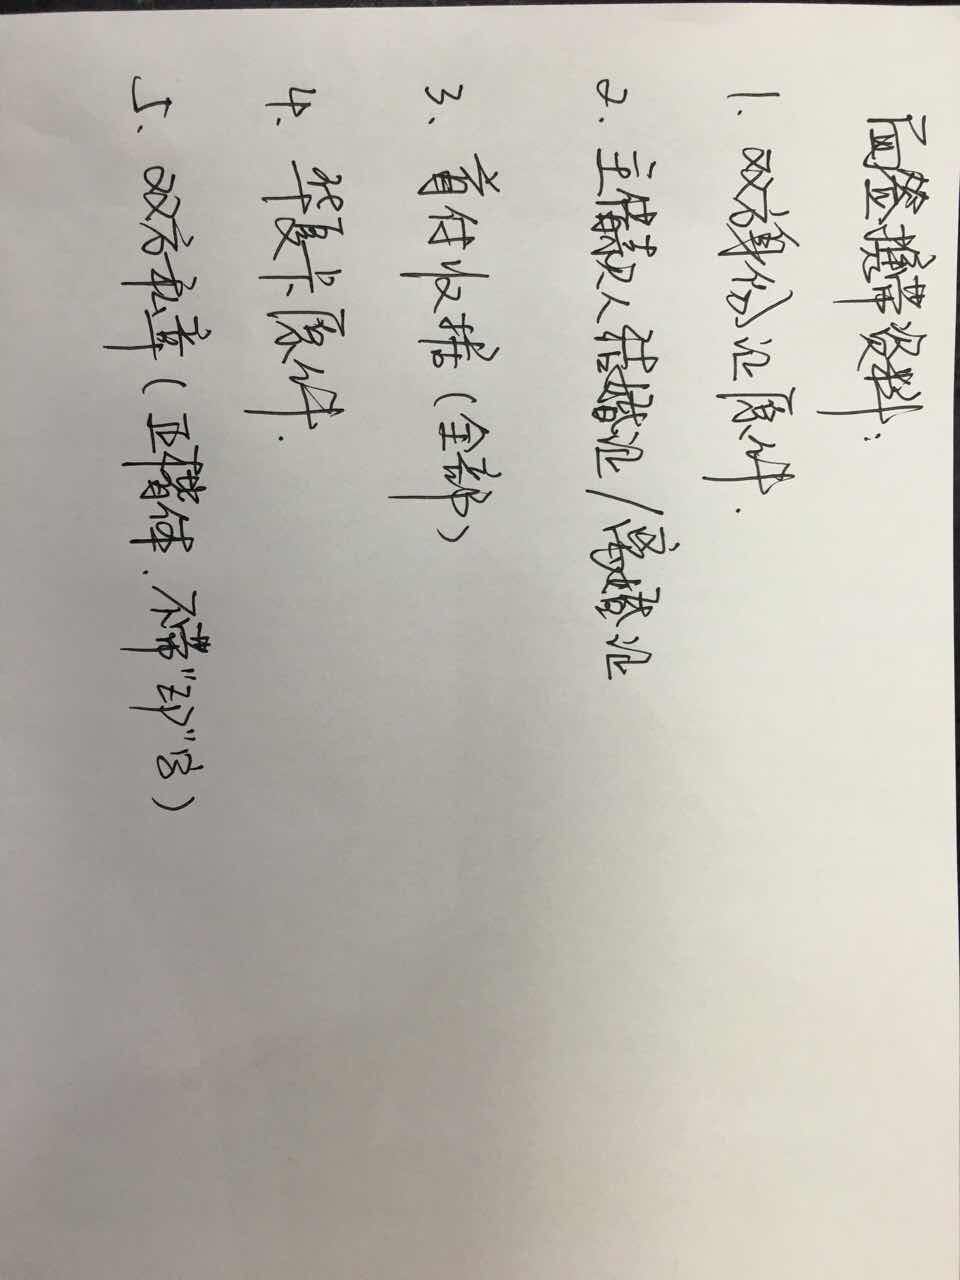 面签携带资料:
1. 双方身份证原件.
2. 主贷款人结婚证/离婚证
3、首付收据(全部)
4、华夏卡原件.
5、双方私章(正楷体.不带"印"字)